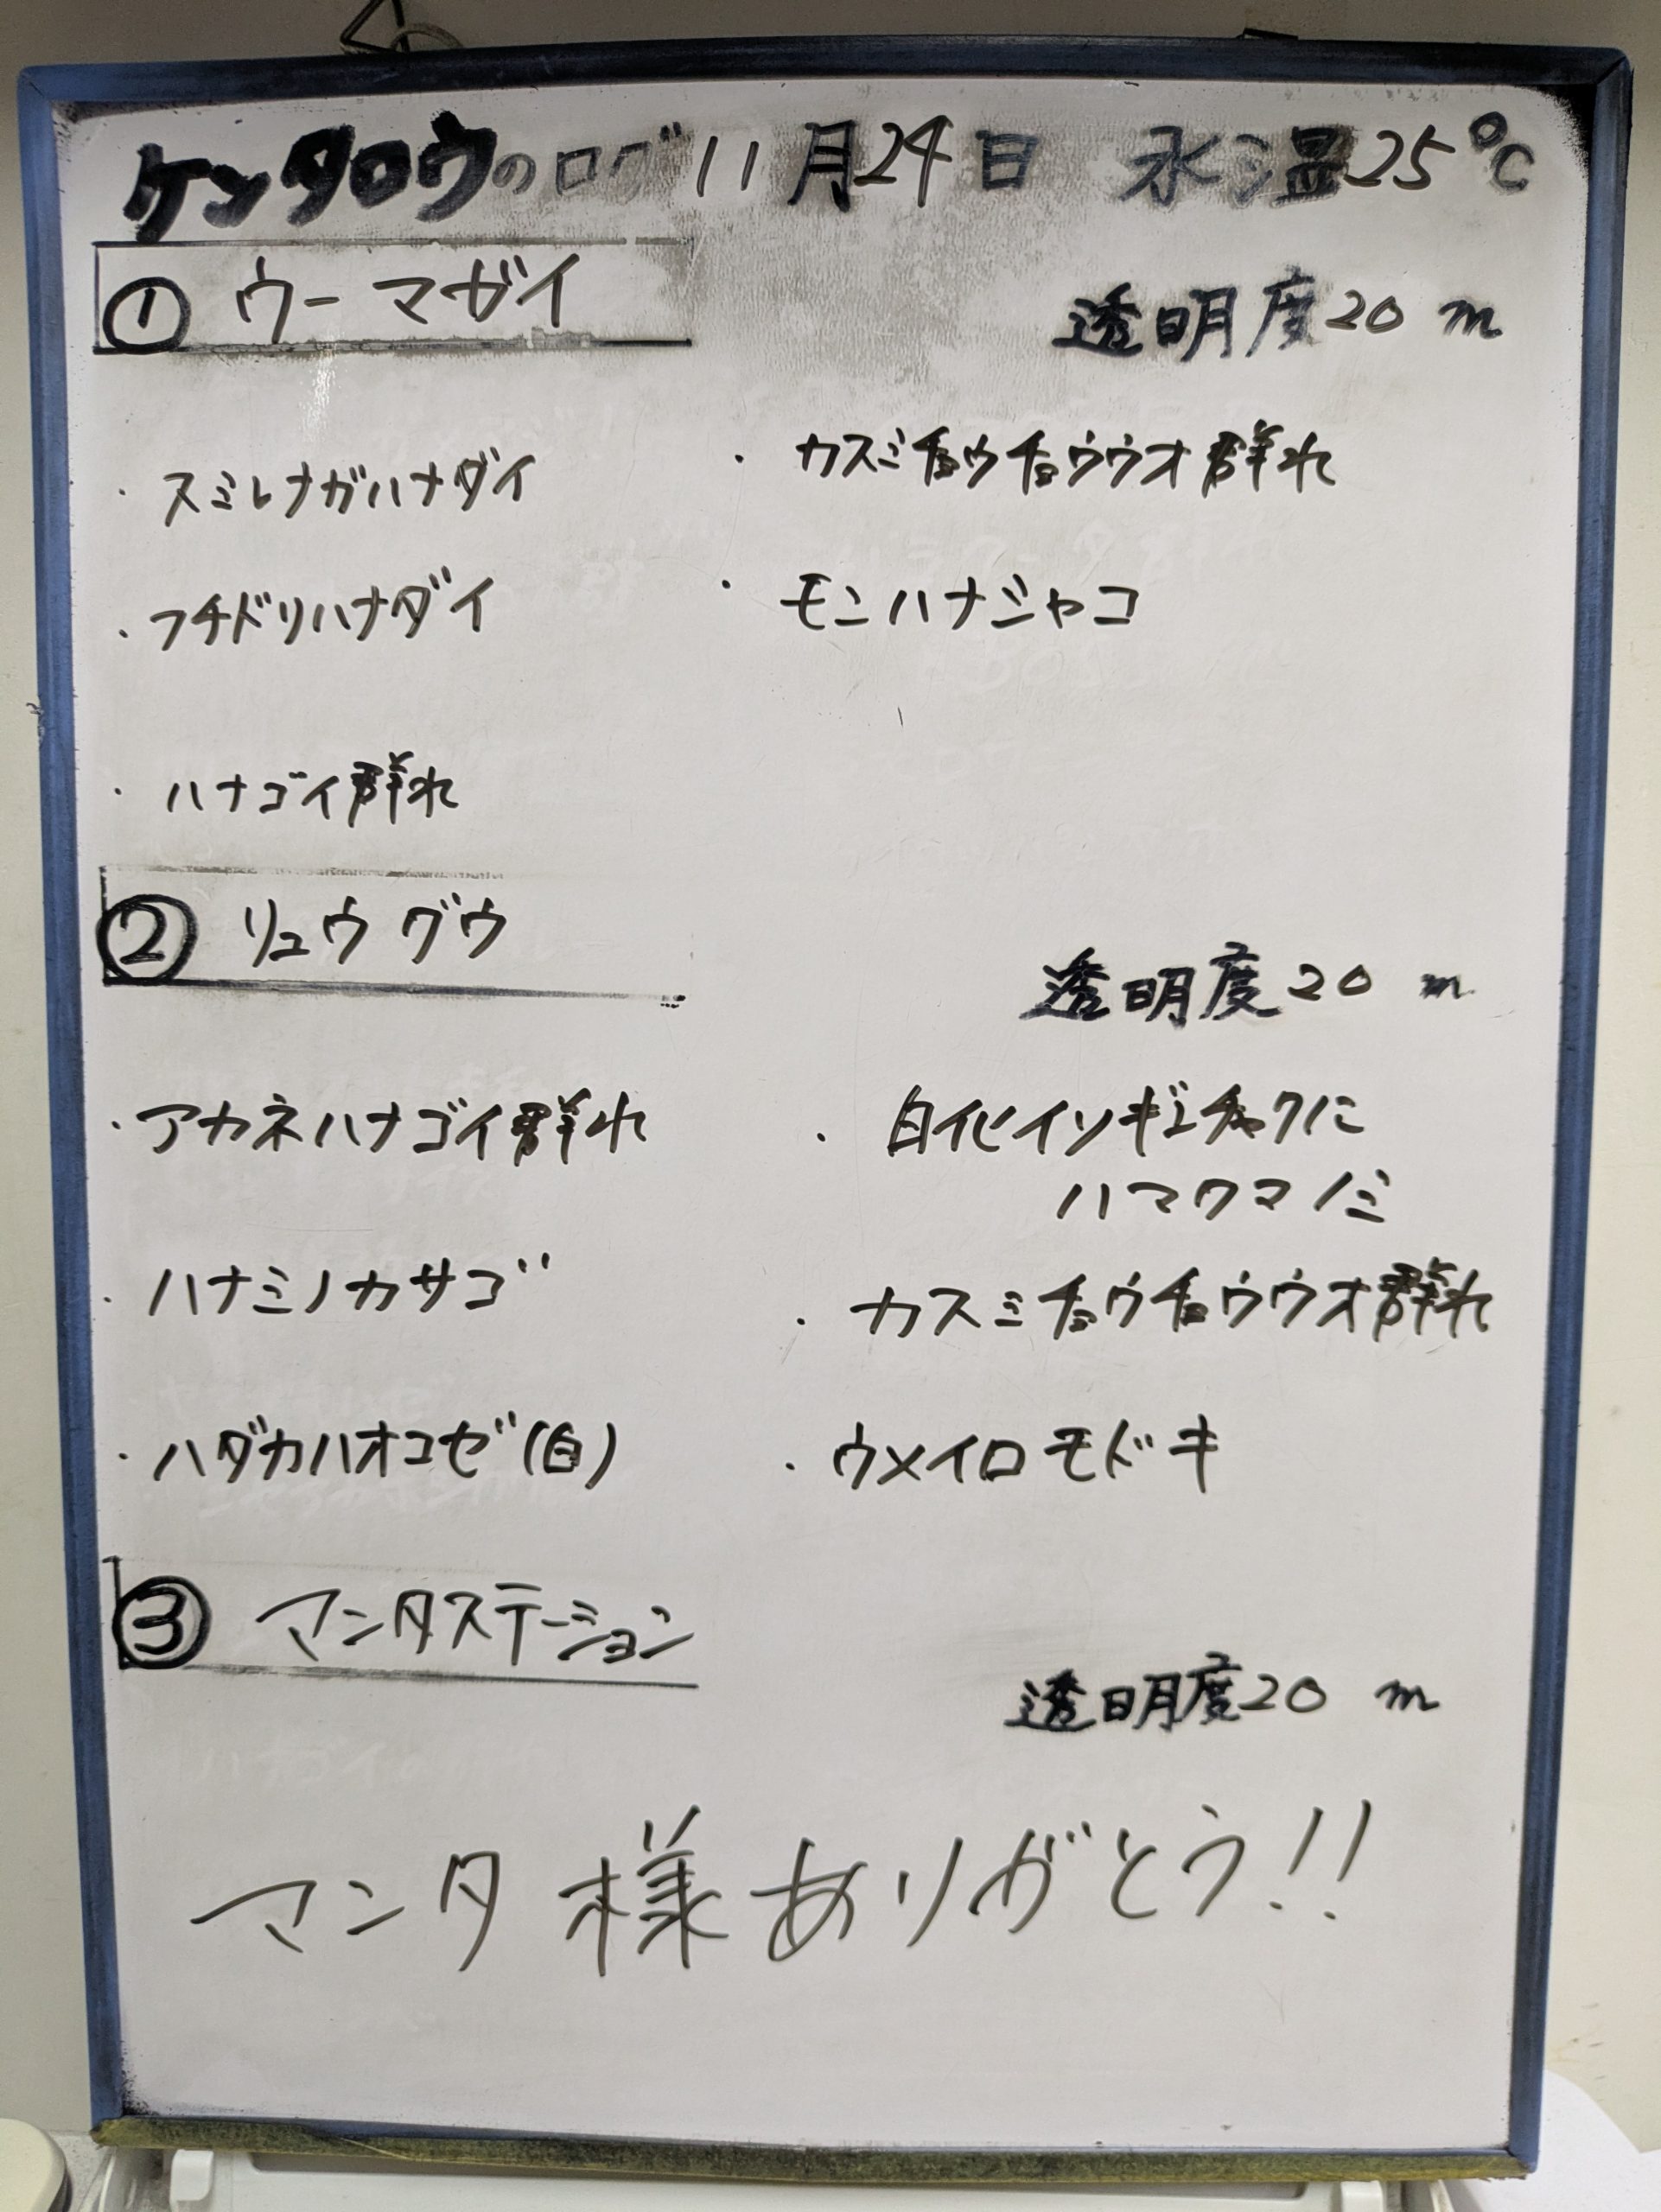 ケンタロウのログ 11月24日 水温25℃
① ウーマガイ
透明度20 m
・スミレナガハナダイ
・フチドリハナダイ
・ハナゴイ群れ
・カスミチョウチョウウオ群れ
・モンハナシャコ
② リュウグウ
透明度20 m
・アカネハナゴイ群れ
・ハナミノカサゴ
・ハダカハオコゼ(白)
・白化イソギンチャクに
ハマクマノミ
・カスミチョウチョウウオ群れ
・ウメイロモドキ
③ マンタステーション
透明度20 m
マンタ様ありがとう!!